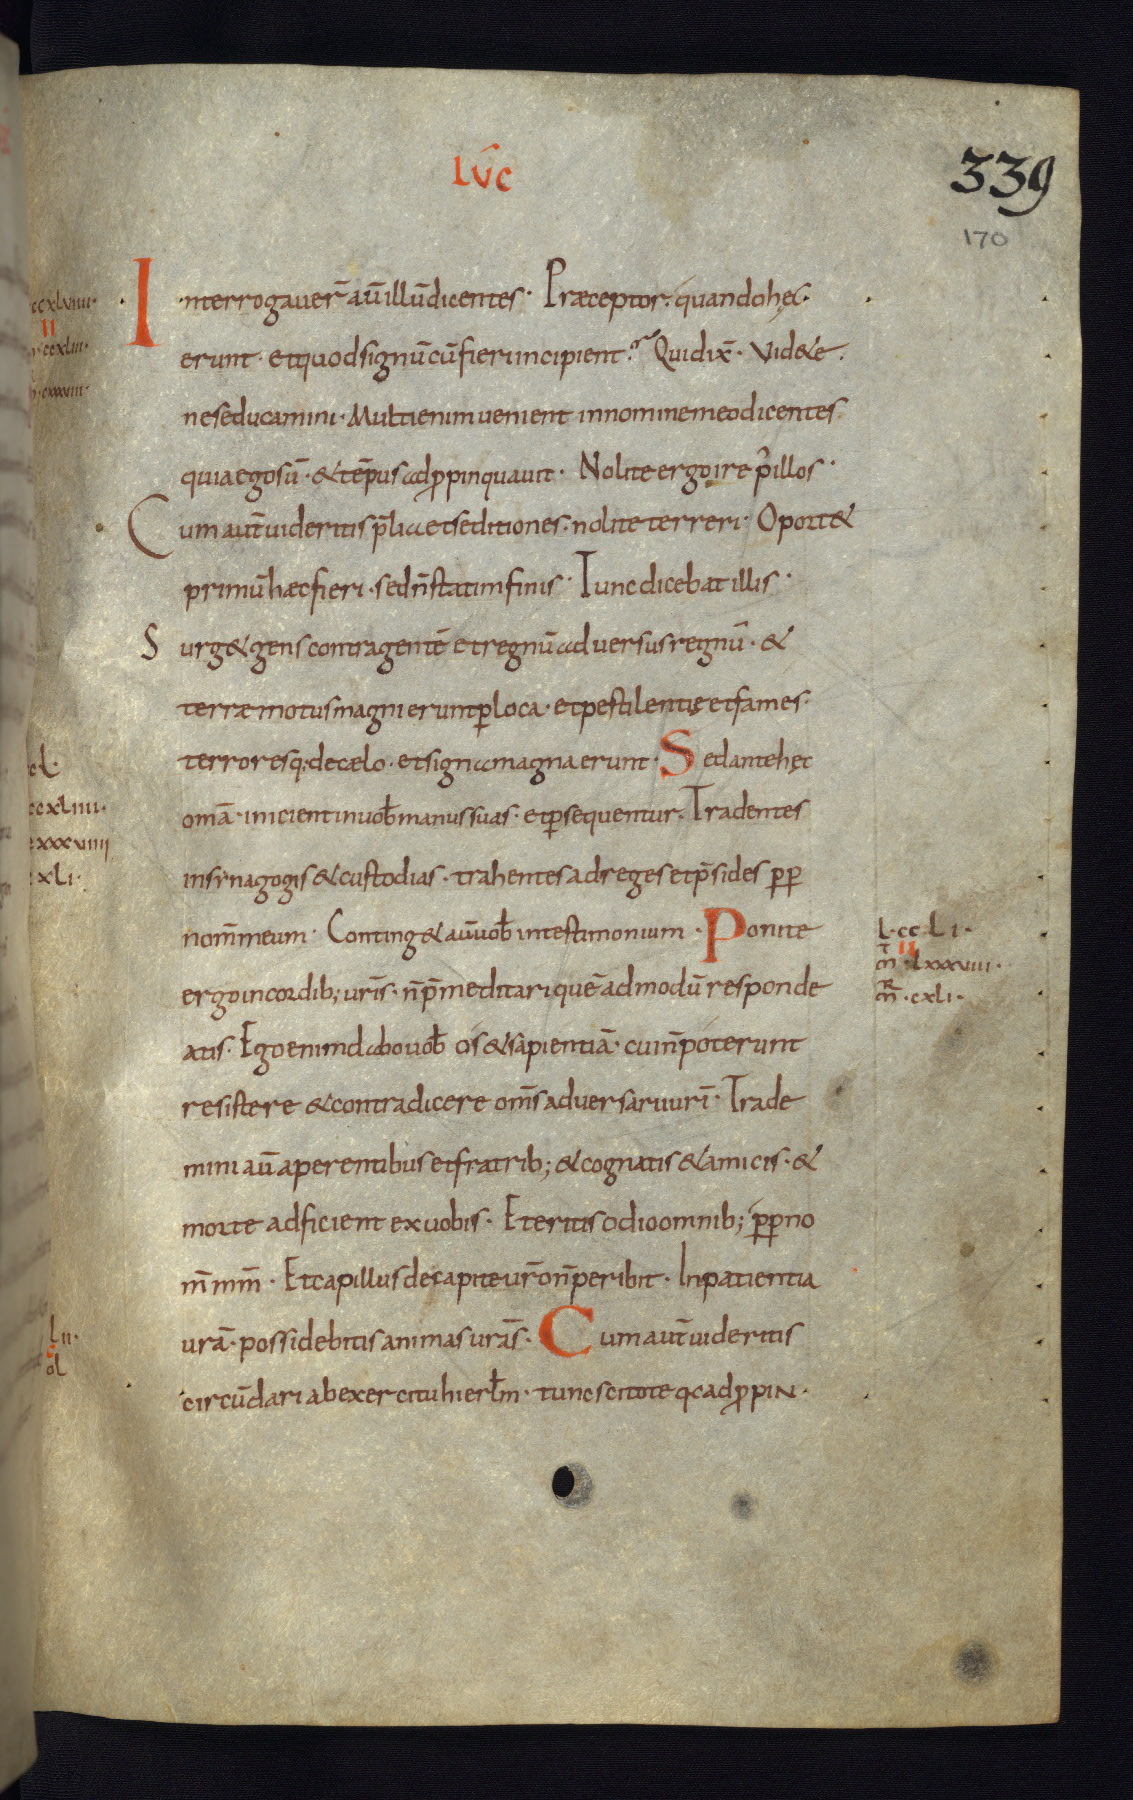 LVC
339
170
Interrogaver̄ aū illū dicentes · Præceptor · quando hęc ·
erunt · et quod signū cū fieri incipient · Qui dix̄ · Videte ·
ne seducamini · Multi enim venient in nomine meo dicentes ·
quia ego sū · & tēpus adpropinquavit · Nolite ergo ire p̄ illos ·
Cum aut̄ videritis p̄lia et seditiones · nolite terreri · Oport&
primū haec fieri · sed n̄ statim finis · Tunc dicebat illis ·
Surg& gens contra gentē et regnū adversus regnū · &
terræmotus magni erunt p̱ loca · et pestilentię et fames ·
terroresq; de cælo · et signa magna erunt · Sed ante hęc
om̄a · inicient in vob̄ manus suas · et p̱sequentur · Tradentes
in synagogis & custodias · trahentes ad reges et p̄sides p̱p̱
nom̄ meum · Conting& aū vob̄ in testimonium · Ponite
ergo in cordib; ur̄is · n̄ p̄meditari quēadmodū responde
atis · Ego enim dabo vob̄ os & sapientiā · cui n̄ poterunt
resistere & contradicere om̄s adversarii ur̄i · Trade
mini aū a perentibus et fratrib; & cognatis & amicis · &
morte adficient ex vobis · Et eritis odio omnib; p̱p̱ no
m̄ mm̄ · Et capillus de capite ur̄o n̄ peribit · In patientia
ur̄a · possidebitis animas ur̄as · Cum aut̄ videritis
circūdari ab exercitu hierl̄m · tunc scitote q̱a adpropin ·
ccxlviiii ·
II
ccxliii ·
cxxxviii ·
cL ·
ccxliiii ·
xxxviiii
xLi ·
L · ccLi ·
II
m̄ · Lxxxviiii ·
R
m̄ · cxLi ·
Lii ·